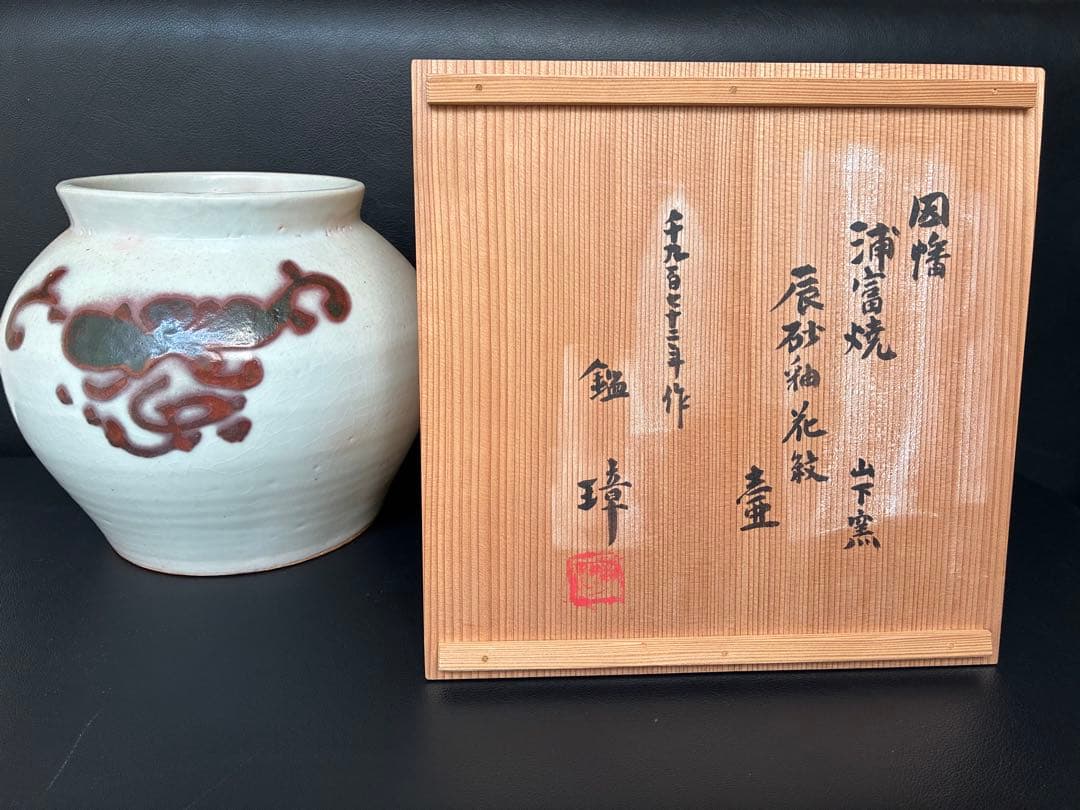 因幡
浦富焼 山下窯
辰砂釉花紋
壷
千九百七十二年作
鑑 璋